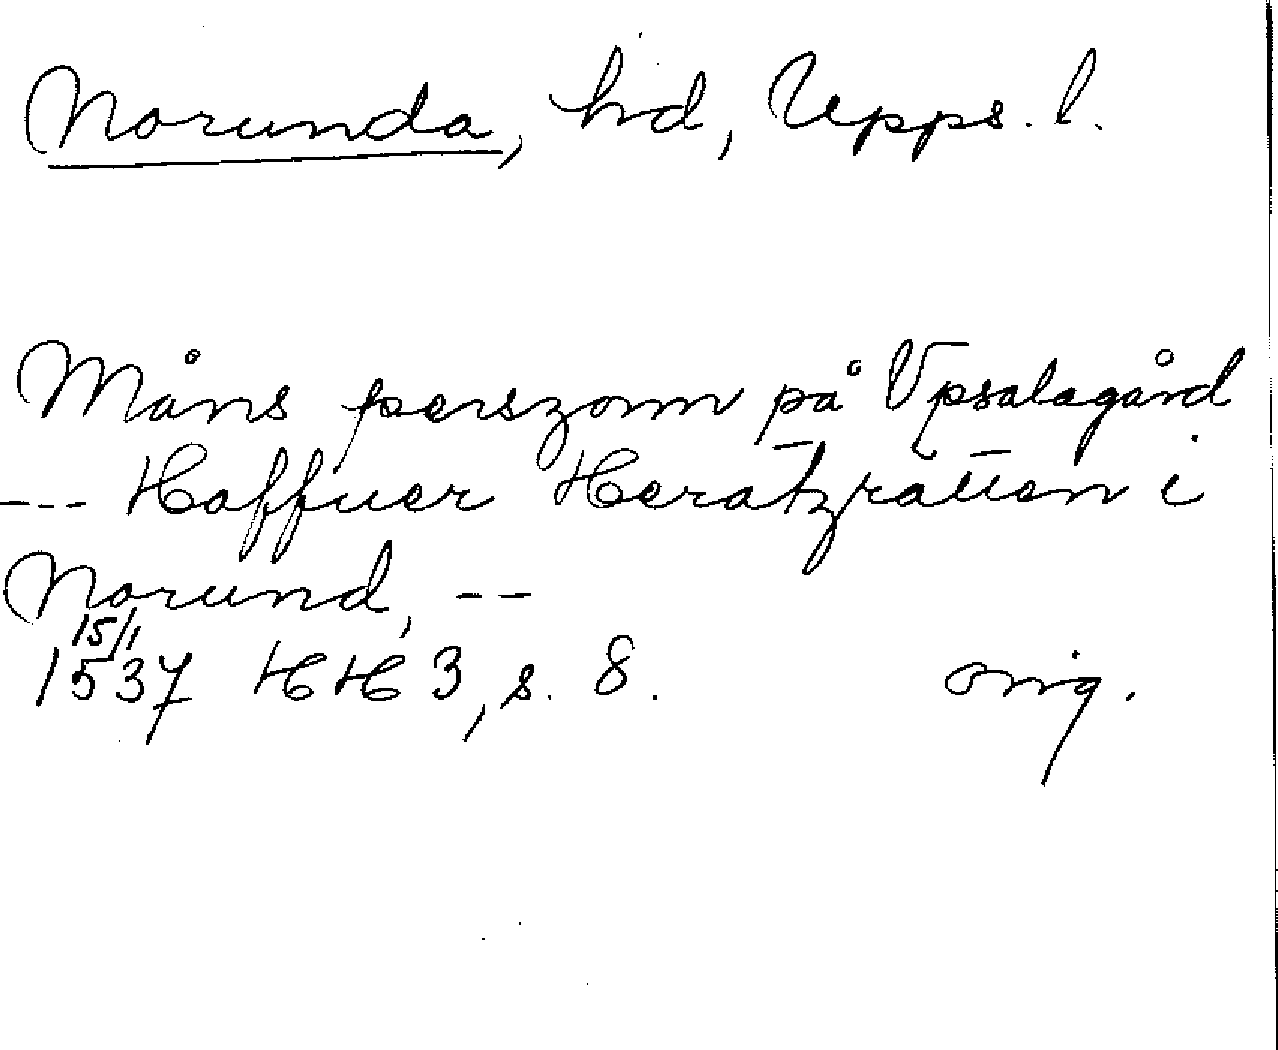 Norunda, hd, Upps. l.
Måns perszonn på Vpsalagård
--- Haffuer Heratzrātten i
Norund, --
15/1
1537 HH 3, s. 8. orig.